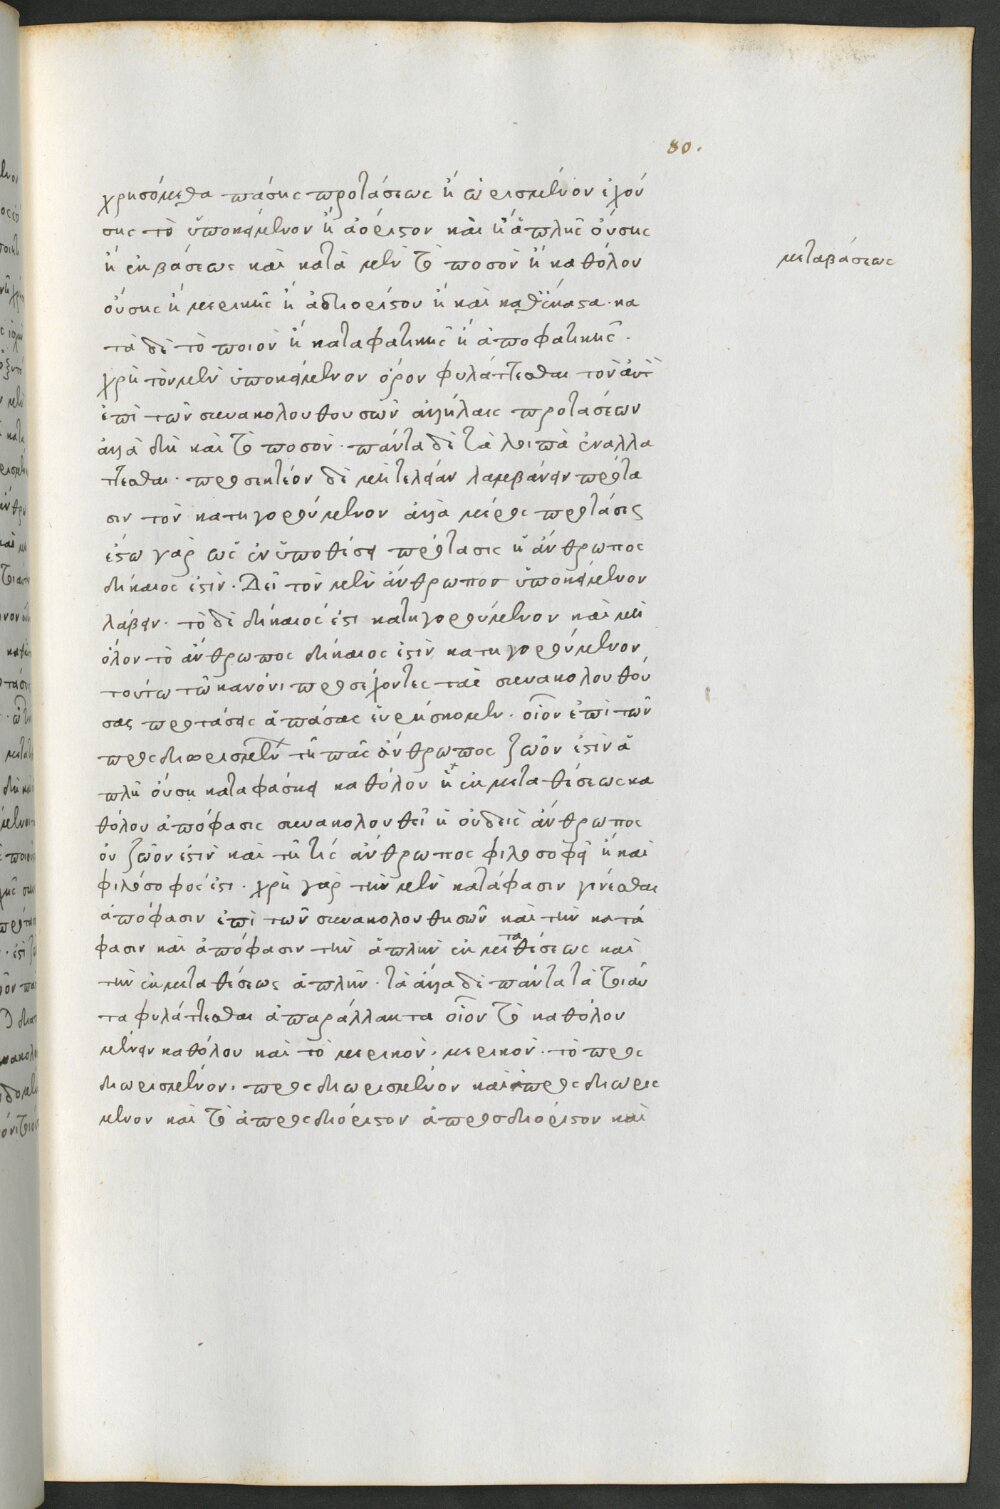 80.
χρησόμεθα πάσης προτάσεως ἢ ὡρισμένον ἐχού
σης τὸ ὑποκείμενον ἢ ἀόριστον καὶ ἢ ἁπλῆς οὔσης
ἢ ἐκ βάσεως καὶ κατὰ μὲν τὸ ποσὸν ἢ καθόλου
μεταβάσεως
οὔσης ἢ μερικῆς ἢ ἀδιορίστου ἢ καὶ καθέκαστα. κα
τὰ δὲ τὸ ποιὸν ἢ καταφατικῆς ἢ ἀποφατικῆς.
χρὴ τὸν μὲν ὑποκείμενον ὅρον φυλάττεσθαι τὸν αὐτ
ἐπὶ τῶν συνακολουθουσῶν ἀλλήλαις προτάσεων
ἀλλὰ δὴ καὶ τὸ ποσὸν. πάντα δὲ τὰ λοιπὰ ἐναλλα
ττεσθαι. προσεκτέον δὲ μὴ τελείαν λαμβάνειν πρότα
σιν τὸν κατηγορούμενον ἀλλὰ μέρος προτάσεως
ἔστω γὰρ ὡς ἐν ὑποθέσει πρότασις ἡ ἄνθρωπος
δίκαιος ἐστὶν. Δεῖ τὸν μὲν ἄνθρωπον ὑποκείμενον
λάβειν. τὸ δὲ δίκαιος ἐστι κατηγορούμενον καὶ μὴ
ὅλον τὸ ἄνθρωπος δίκαιος ἐστὶν κατηγορούμενον
τούτω τῶ κανόνι προσέχοντες τὰς συνακολουθού
σας προτάσεις ἁπάσας εὑρίσκομεν. οἷον ἐπὶ τῶν
προςδιορισμῶν τῆ πᾶς ἄνθρωπος ζῶον ἐστὶν ἁ
πλῆ οὔση καταφάσει καθόλου ἡ ἐκ μεταθέσεως κα
θόλου ἀπόφασις συνακολουθεῖ ἡ οὐδεὶς ἄνθρωπος
οὐ ζῶον ἐστὶν καὶ τῆ τὶς ἄνθρωπος φιλοσοφεῖ ἡ καὶ
φιλόσοφος ἐστι. χρὴ γὰρ τὴν μὲν κατάφασιν γίνεσθαι
ἀπόφασιν ἐπὶ τῶν συνακολουθησῶν καὶ τὴν κατά
φασιν καὶ ἀπόφασιν τὴν ἁπλῆν ἐκ μεταθέσεως καὶ
τὴν ἐκ μεταθέσεως ἁπλῆν. τὰ ἄλλα δὲ πάντα τὰ τοιαύ
τα φυλάττεσθαι ἀπαράλλακτα οἷον τὸ καθόλου
μένειν καθόλου καὶ τὸ μερικὸν. μερικὸν. τὸ προς
διωρισμένον. προςδιωρισμένον καὶ ἀπροςδιωρισ
μένον καὶ τὸ ἀπροςδιόριστον ἀπροσδιόριστον καὶ